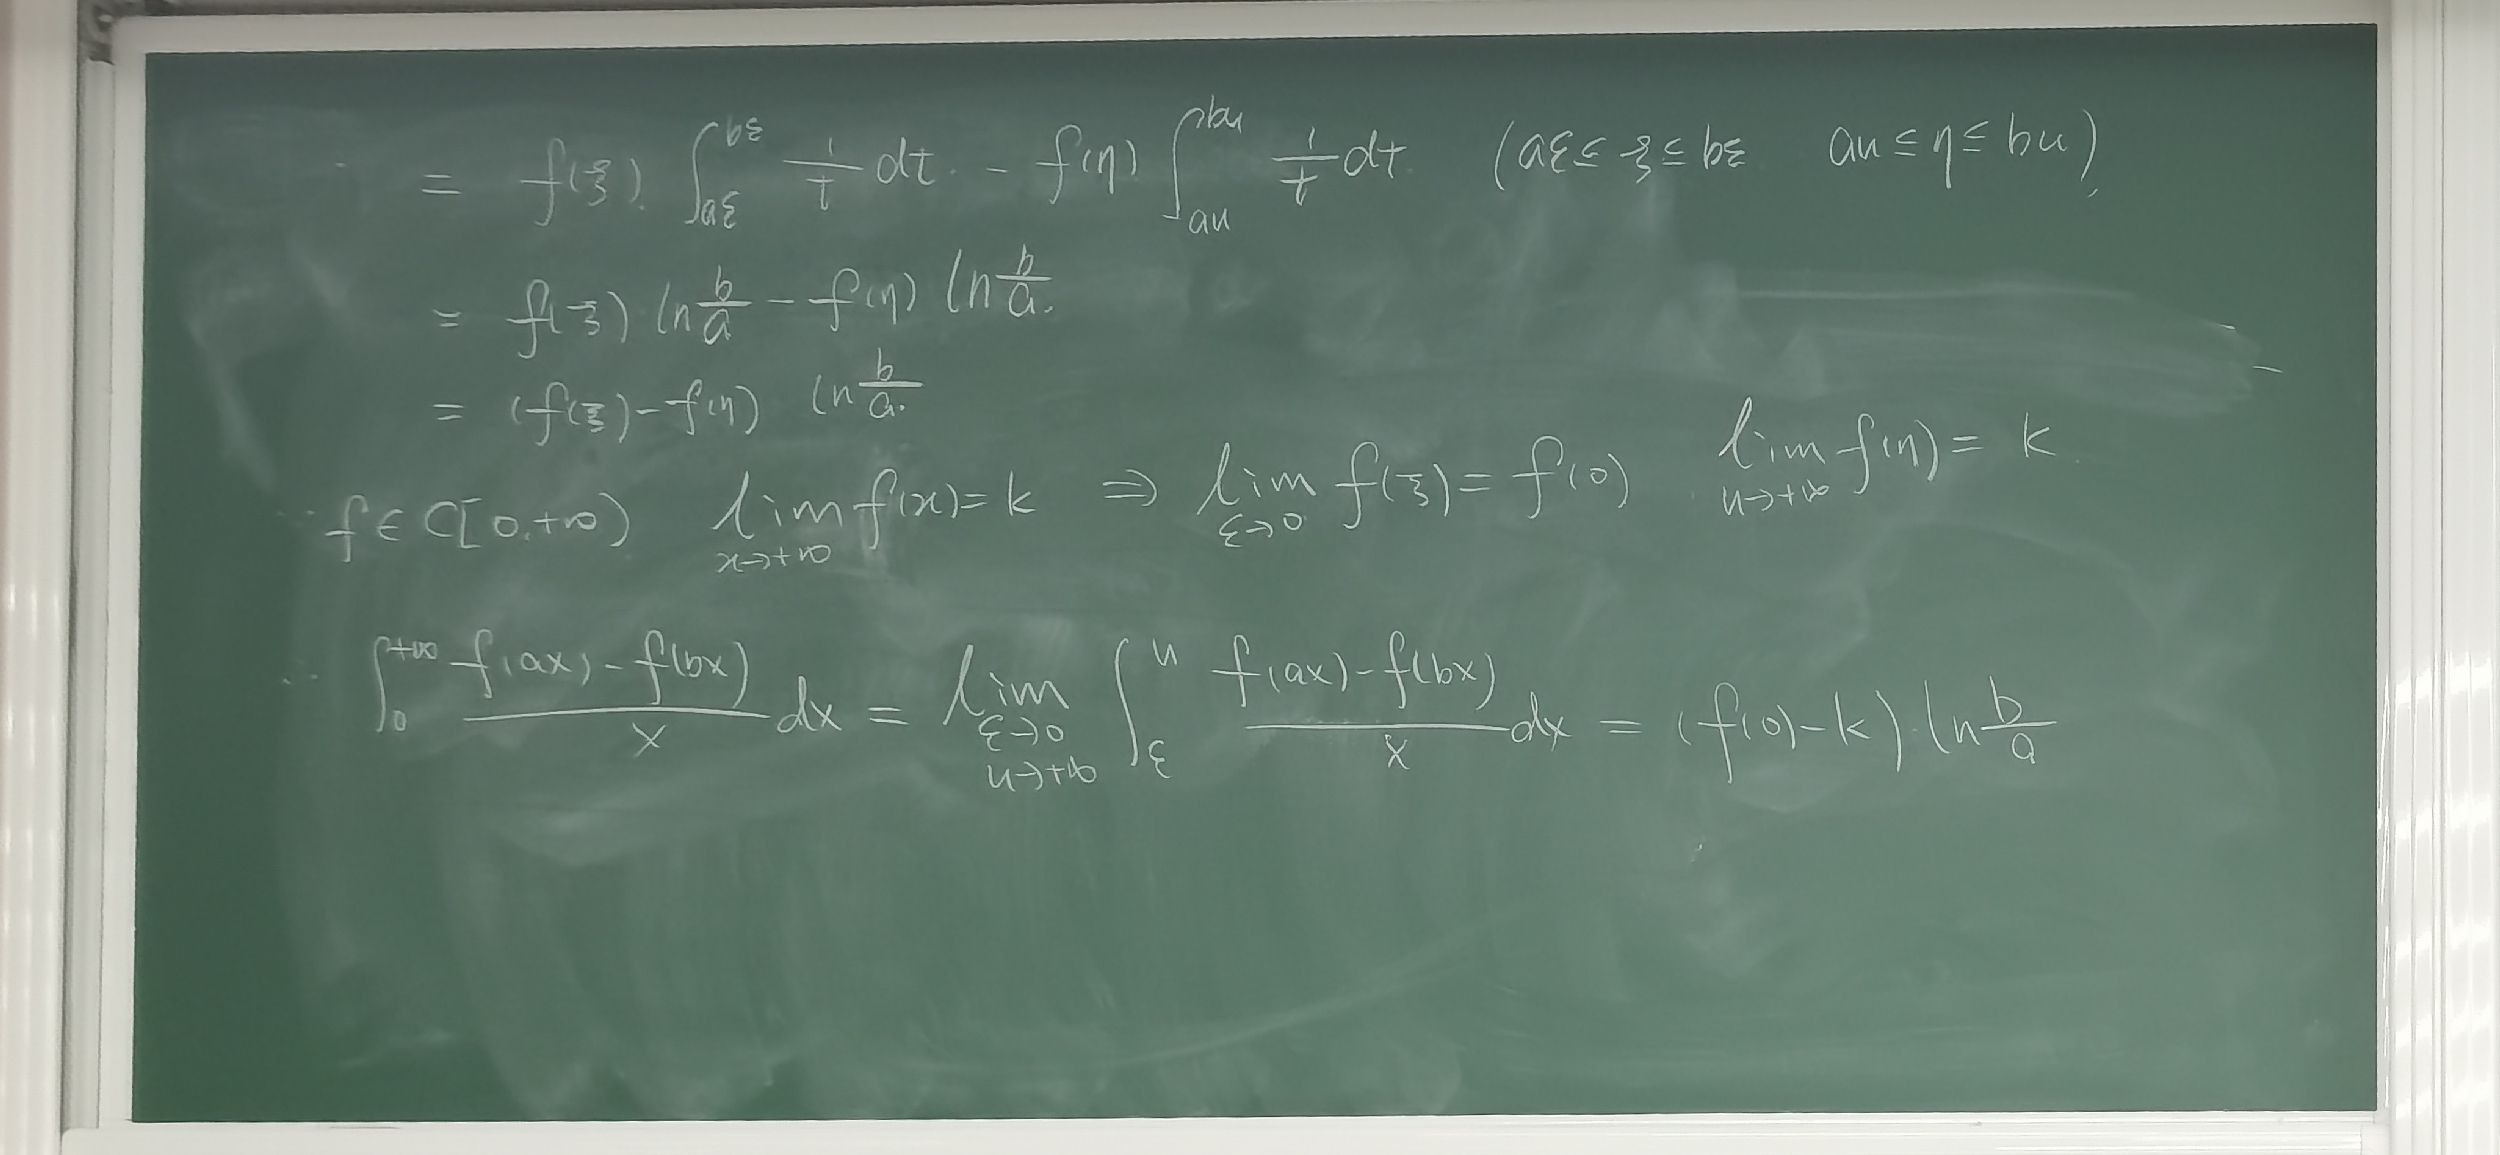 = f(ξ) ∫_{aε}^{bε} 1/t dt - f(η) ∫_{au}^{bu} 1/t dt (aε ≤ ξ ≤ bε au ≤ η ≤ bu)
= f(ξ) ln b/a - f(η) ln b/a.
= (f(ξ) - f(η)) ln b/a.
∵ f ∈ C[0,+∞) lim_{x→+∞} f(x) = k ⇒ lim_{ε→0} f(ξ) = f(0) lim_{u→+∞} f(η) = k
∴ ∫_0^{+∞} (f(ax) - f(bx))/x dx = lim_{ε→0 u→+∞} ∫_ε^u (f(ax) - f(bx))/x dx = (f(0) - k) · ln b/a